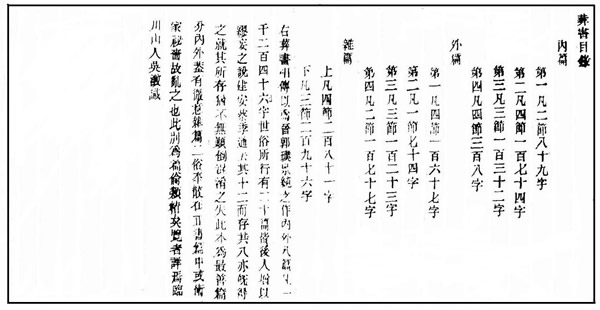 葬書目錄
內篇
第一凡二節八十九字
第二凡四節一百七十四字
第三凡三節一百三十二字
第四凡四節三百八字
外篇
第一凡四節一百六十七字
第二凡一節七十四字
第三凡三節一百二十三字
第四凡二節一百七十七字
雜篇
上凡四節二百八十一字
下凡三節二百九十六字
右葬書相傳以爲晉郭璞景純之作內外八篇凡一
千二百四十六字世俗所行有二十篇皆後人增以
謬妄之說建安蔡季通去其十二而存其八亦旣得
之就其所存猶不無顚倒混淆之失此本爲最善篇
分內外葢有微意雜篇二俗本散在正書篇中或術
家秘嗇故亂之也此別爲篇倫類精矣覽者詳焉臨
川山人吳澂識